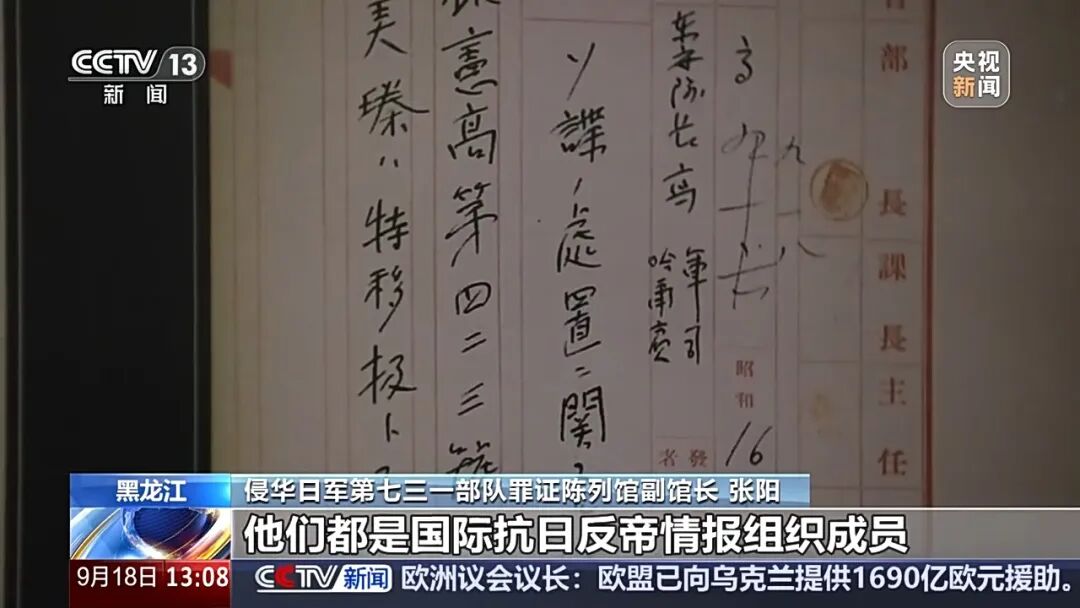 CCTV 13
新闻
央视
新闻
部
長
課
長
主
任
昭和
16
發
者
高
軍司
東安隊長高
ソ諜ノ處置ニ関
憲高第四二三號
美臻ハ特移扱ト
黑龙江
侵华日军第七三一部队罪证陈列馆副馆长 张阳
他们都是国际抗日反帝情报组织成员
9月18日 13:08
CCTV 新闻
欧洲议会议长：欧盟已向乌克兰提供1690亿欧元援助。